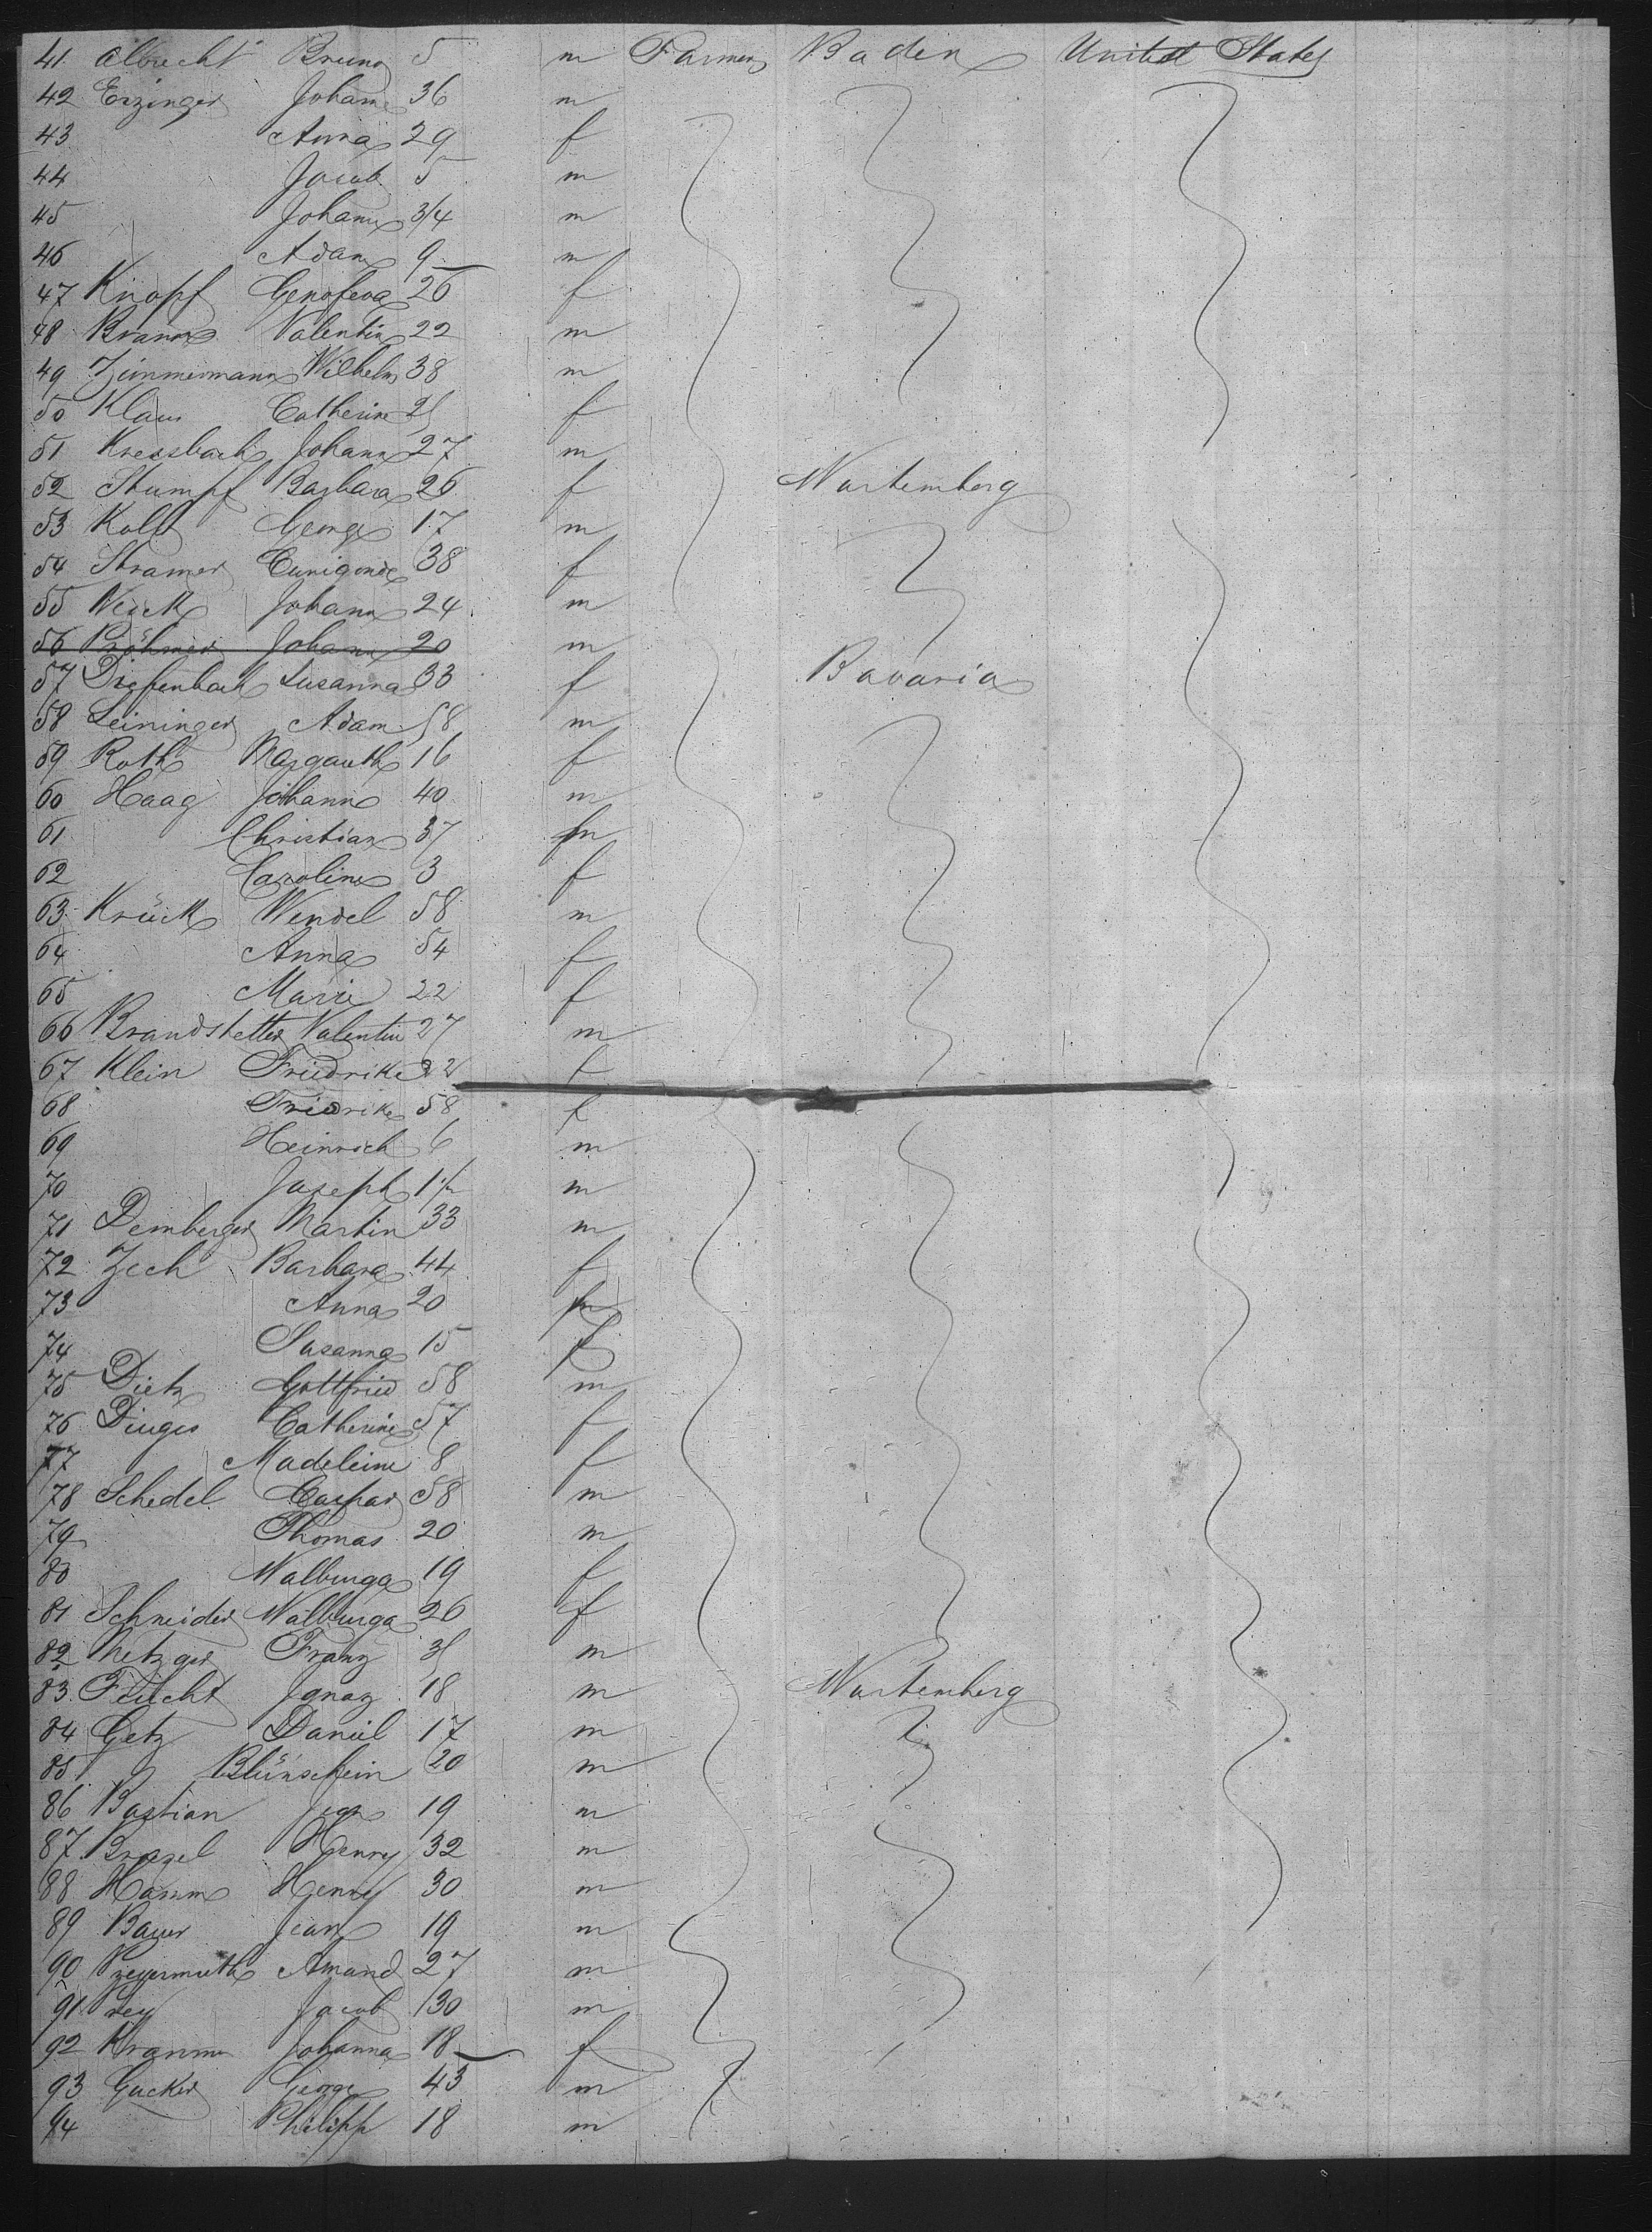 41 Albrecht Bruno 5 m Farmer Baden United States
42 Erzinger Johann 36 m
43 Anna 29 f
44 Jacob 5 m
45 Johann 3/4 m
46 Adam 9 m
47 Knopf Genofeva 26 f
48 Bramm Valentin 22 m
49 Zimmermann Wilhelm 38 m
50 Klaus Catherine 21 f
51 Kressbach Johann 27 m
52 Stumpf Barbara 26 f Wurtemberg
53 Kolb George 17 m
54 Stramer Cunigonde 38 f
55 Weick Johann 24 m
56 Pröhmer Johann 20 m
57 Diefenbach Susanna 33 f Bavaria
58 Leininger Adam 58 m
59 Roth Margareth 16 f
60 Haag Johann 40 m
61 Christian 37
62 Caroline 3 f
63 Krück Wendel 58 m
64 Anna 54 f
65 Marie 22 f
66 Brandstetter Valentin 27 m
67 Klein Friedrike 22 f
68 Friedrike 58 f
69 Heinrich 6 m
70 Joseph 1 1/2 m
71 Demberger Martin 33 m
72 Zech Barbara 44 f
73 Anna 20
74 Susanna 15 f
75 Dietz Gottfried 58 m
76 Dinges Catherine 57 f
77 Madeleine 8 f
78 Schedel Caspar 58 m
79 Thomas 20 m
80 Walburga 19 f
81 Schneider Walburga 26 f
82 Metzger Franz 31 m
83 Feucht Ignaz 18 m Wurtemberg
84 Getz Daniel 17 m
85 Blünschein 20 m
86 Bastian Jean 19 m
87 Brazel Henry 32 m
88 Hamm Henry 30 m
89 Bauer Jean 19 m
90 Amand 27 m
91 Jacob 30 m
92 Kramm Johanna 18 f
93 Gucker George 43 m
94 Philipp 18 m